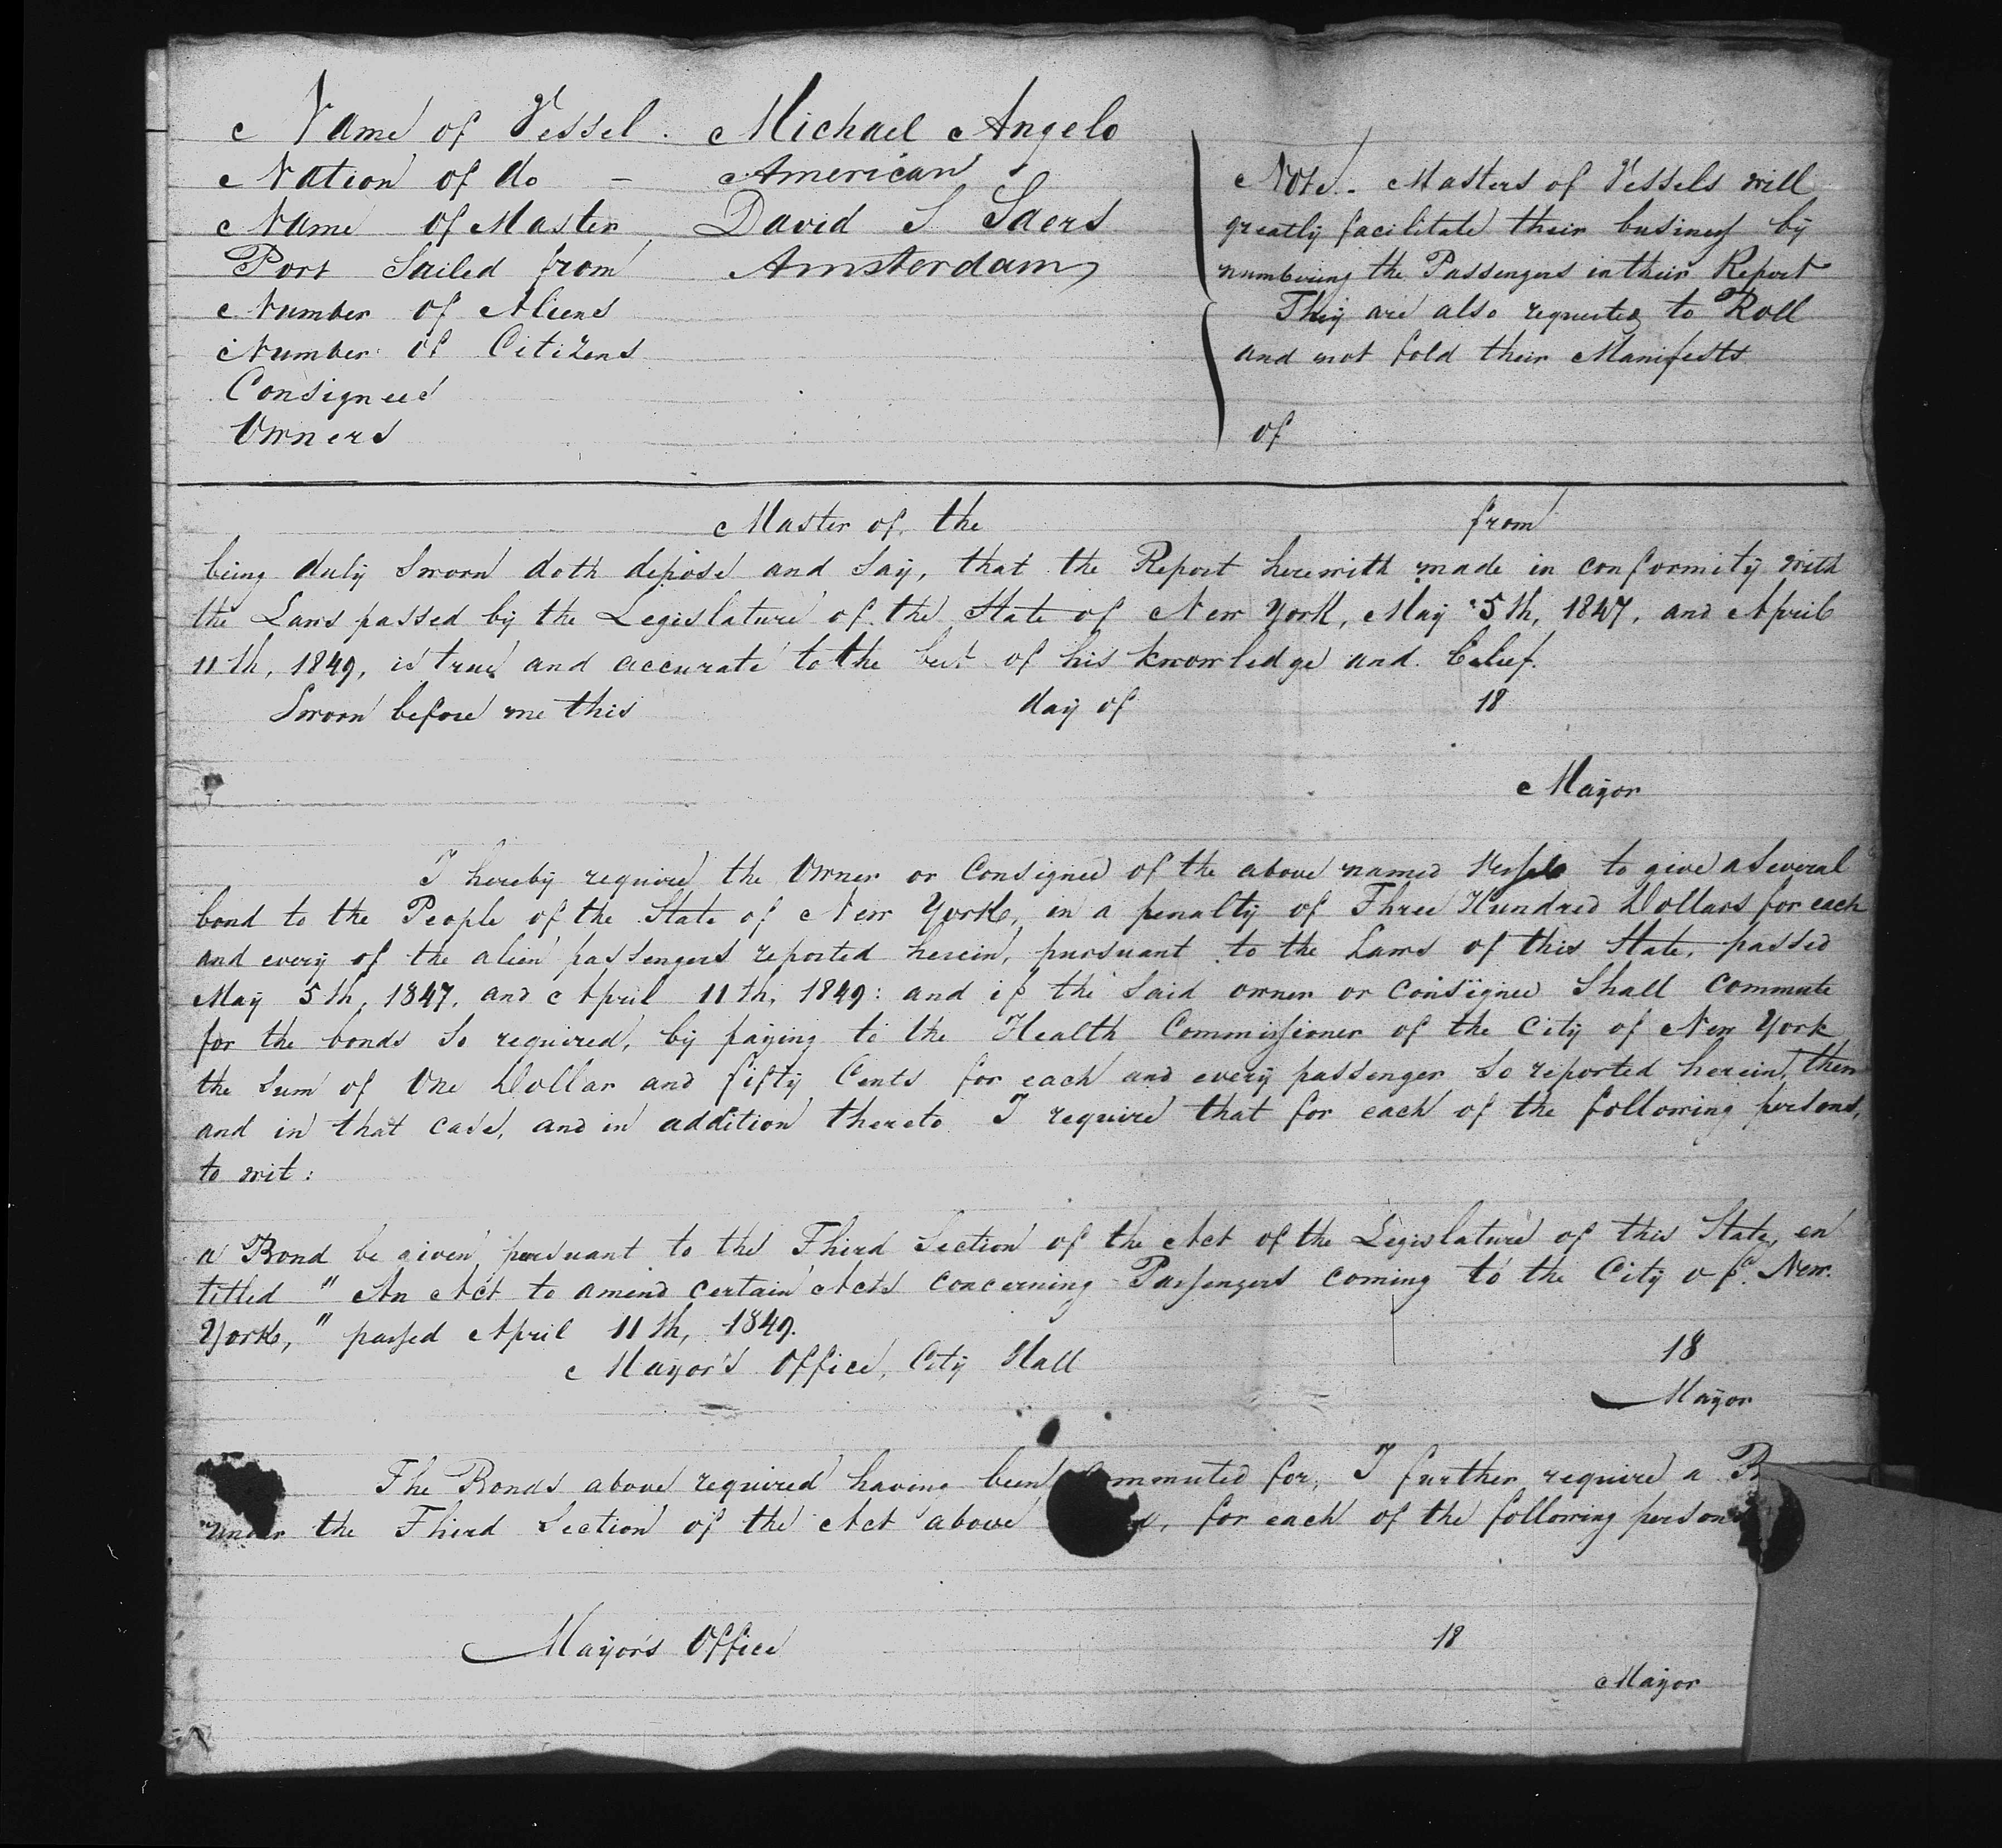 Name of Vessel. Michael Angelo
Nation of do – American
Name of Master David S Saers
Port Sailed from Amsterdam
Number of Aliens
Number of Citizens
Consignees
Owners
Note. Masters of Vessels will
greatly facilitate their business by
numbering the Passengers in their Report
They are also requested to Roll
and not fold their Manifests
of
Master of the from
being duly Sworn doth depose and Say, that the Report herewith made in conformity with
the Laws passed by the Legislature of the State of New York, May 5th, 1847, and April
11th, 1849, is true and accurate to the best of his knowledge and belief.
Sworn before me this day of 18
Mayor
I hereby require the Owner or Consignee of the above named Vessel to give a Several
bond to the People of the State of New York, in a penalty of Three Hundred Dollars for each
and every of the alien passengers reported herein, pursuant to the Laws of this State, passed
May 5th, 1847, and April 11th, 1849: and if the Said owner or Consignee Shall Commute
for the bonds So required, by paying to the Health Commissioner of the City of New York
the Sum of One Dollar and fifty Cents for each and every passenger So reported herein, then
and in that case, and in addition thereto I require that for each of the following persons,
to wit:
a Bond be given pursuant to the Third Section of the Act of the Legislature of this State, en
titled "An Act to amend certain Acts concerning Passengers coming to the City of New
York," passed April 11th, 1849.
Mayor's Office, City Hall 18
Mayor
The Bonds above required having been mmuted for, I further require a B
under the Third Section of the Act above for each of the following person
Mayor's Office 18
Mayor